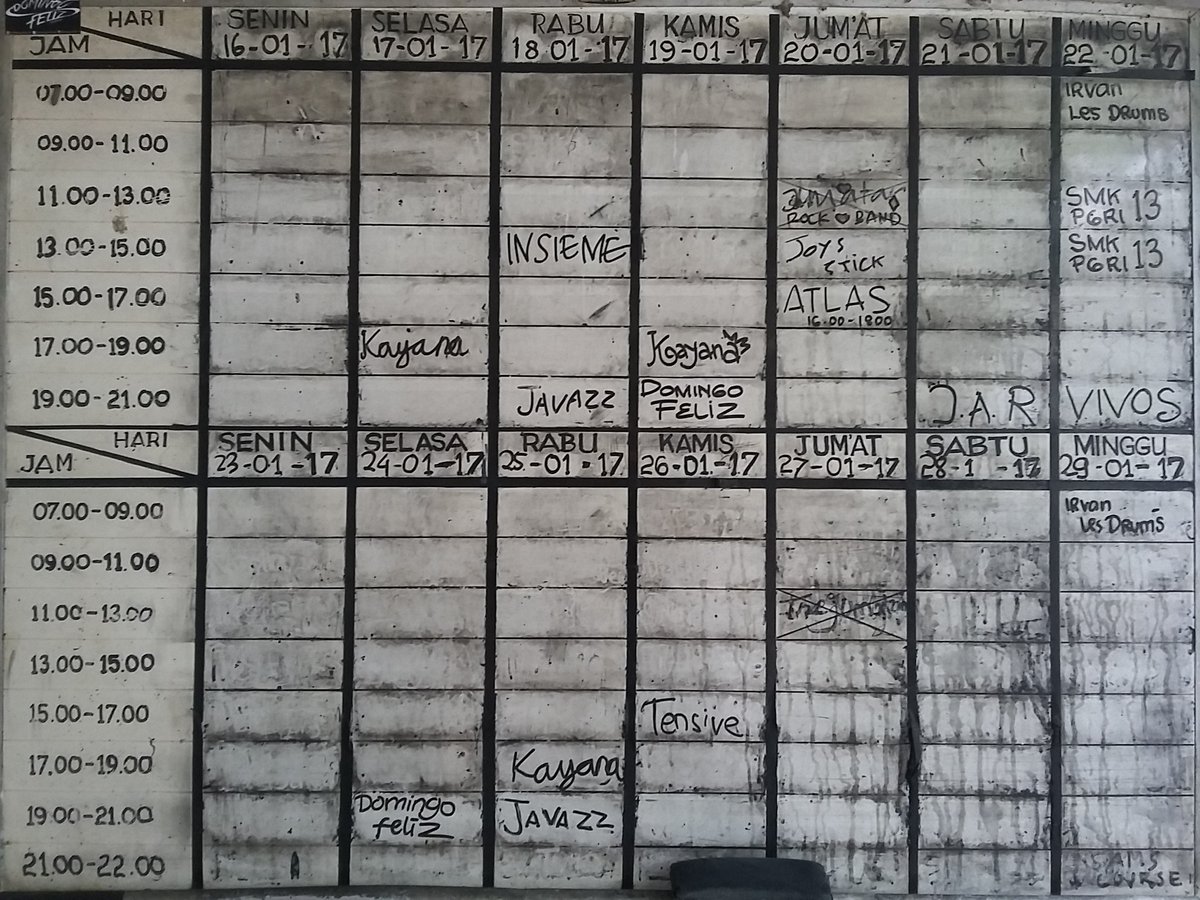 DOMINGO FELIZ
HARI SENIN SELASA RABU KAMIS JUM'AT SABTU MINGGU
JAM 16-01-17 17-01-17 18 01-17 19-01-17 20-01-17 21-01-17 22-01-17
07.00-09.00 IRvan
Les DRumS
09.00-11.00
11.00-13.00 SMK
ROCK BAND PGRI 13
13.00-15.00 INSIEME Joys SMK
STICK PGRI 13
15.00-17.00 ATLAS
16.00-1800
17.00-19.00 Kayana Kayana
19.00-21.00 JAVAZZ DOMINGO J.A.R VIVOS
FELIZ
HARI SENIN SELASA RABU KAMIS JUM'AT SABTU MINGGU
JAM 23-01-17 24-01-17 25-01-17 26-01-17 27-01-17 28-1 -17 29-01-17
07.00-09.00 IRvan
Les DRumS
09.00-11.00
11.00-13.00
13.00-15.00
15.00-17.00 Tensive
17.00-19.00 Kayana
19.00-21.00 Domingo JAVAZZ
feliz
21.00-22.00
COURSE